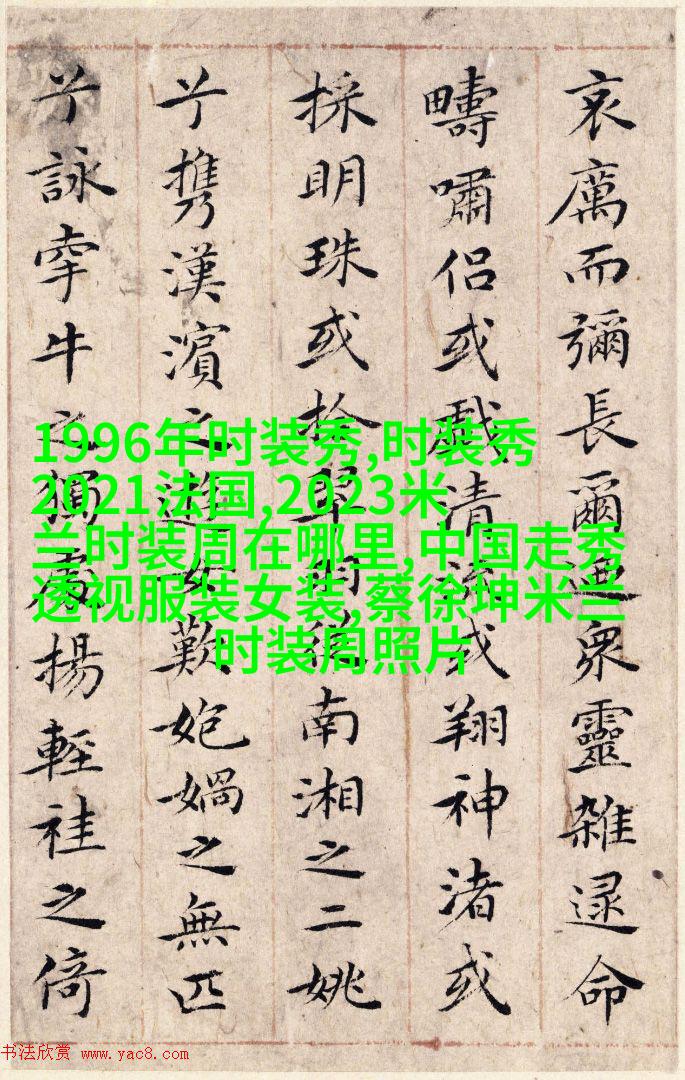 哀厲而彌長爾迺衆靈雜遝命
疇嘯侶或戲清流或翔神渚或
採明珠或拾翠南湘之二姚
兮攜漢濱之遊女歎媧之無匹
兮詠牽牛之獨處揚輕袿之倚
1996年时装秀,时装秀
2021法国,2023米
兰时装周在哪里,中国走秀
透视服装女装,蔡徐坤米兰
时装周照片
书法欣赏 www.yac8.com